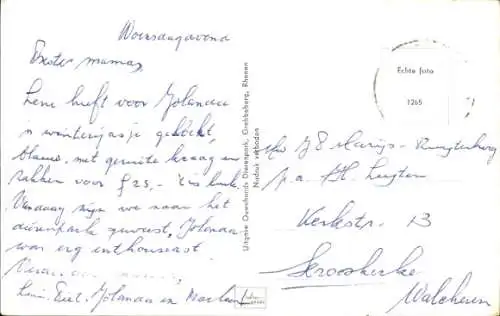 Woensdagavond
Beste mama,
Leni heeft voor Jolanda
'n winterjasje gekocht,
blauw, met geruite kraag en
zakken voor f 25,- 't is leuk.
Vandaag zijn we naar het
dierenpark geweest, Jolanda
was erg enthousiast
Leni. Jolanda en
Uitgave Ouwehands Dierenpark, Grebbeberg, Rhenen
Nadruk verboden
Echte foto
1265
p.a.
Kerkstr. 13
Serooskerke
Walcheren